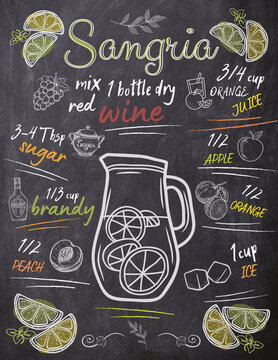 Sangria
mix 1 bottle dry
red wine
3/4 cup
ORANGE
JUICE
3-4 Tbsp
sugar
1/2
APPLE
1/3 cup
brandy
1/2
ORANGE
1/2
PEACH
1 cup
ICE